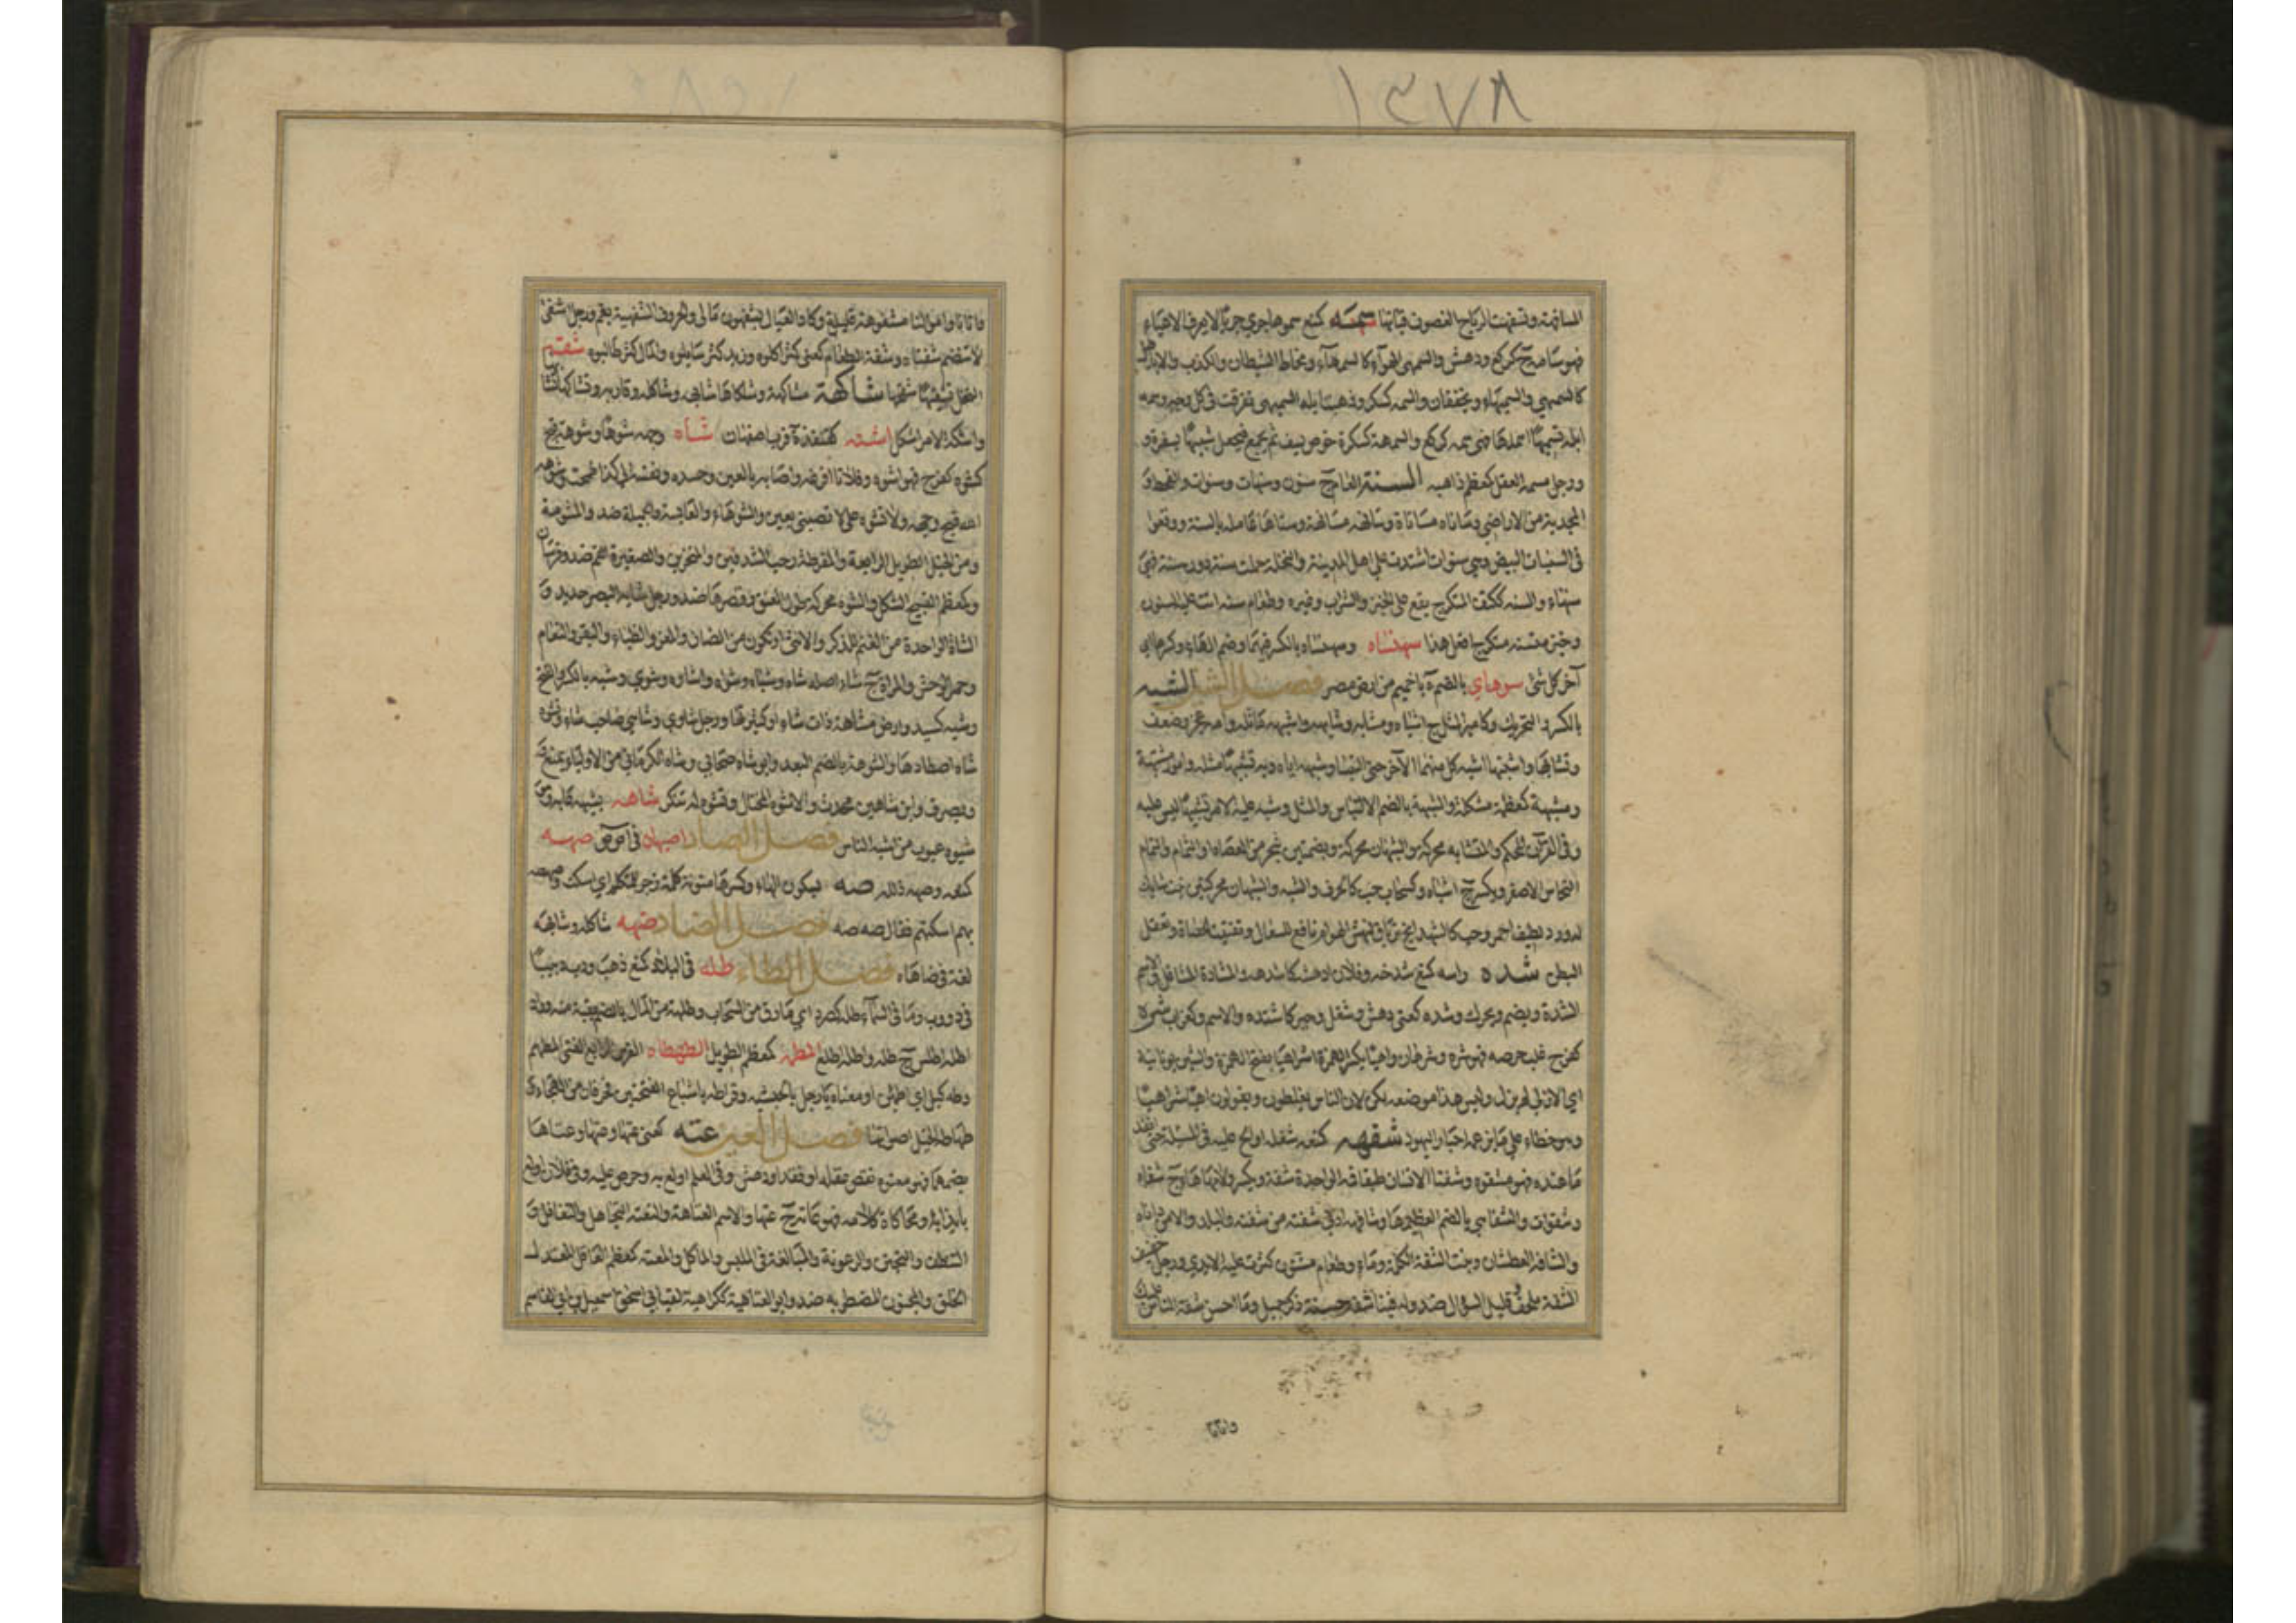 ١٣٧٨
وتسفهت الرياح الغصون فيأتها سمه كمنع سموها جرى جريا لا يعرف الاعياء
فهو سامه ج كركع ودهش والسمهى الهواء كالسمهاء ومخاط الشيطان والكذب والاباطيل
كالسميهى والسميهاء ويخففان والسمه كسكر وذهبت ابله السميهى تفرقت في كل وجه وسمه
ابله تسميها اهملها فهي سمه كركع والسمهة كسكرة خوص يسف ثم يجمع فيجعل شبيها بسفرة و
ورجل مسمه العقل كمعظم ذاهبه السنة العام ج سنون وسنهات وسنوات والقحط و
المجدبة من الاراضي وسانهه مسانهة وساناه مساناة عامله بالسنة ووقعوا
في السنيات البيض وهي سنوات اشتددن على اهل المدينة والنخلة حملت سنة دون سنة فهي
سنهاء والسنه ككتف المتكرج يقع على الخبز والشراب وغيره وطعام سنه اتت عليه السنون
وخبز متسنه متكرج افعل هذا سهنساه وسهنساه بالكسر فيهما وضم الهاء وكسرها اي
آخر كل شئ سوهاي بالضم ة باخميم من ارض مصر فصل الشين الشبه
بالكسر والتحريك وكامير المثل ج اشباه ومشابه وشابهه واشبهه ماثله وامه عجز وضعف
وتشابها واشتبها اشبه كل منهما الآخر حتى التبسا وشبهه اياه وبه تشبيها مثله وامور مشتبهة
ومشبهة كمعظمة مشكلة والشبهة بالضم الالتباس والمثل وشبه عليه الامر تشبيها لبس عليه
وفي القرآن المحكم والمتشابه والشبه والشبهان محركة وبضمتين شجر من العضاه او الثمام والنمام
النحاس الاصفر ويكسر ج اشباه وكسحاب حب كالحرف والشبه والشبهان محركتين نبت شايك
له ورد لطيف احمر وحب كالشهدانج ترياق لنهش الهوام نافع للسعال ويفتت الحصاة ويعقل
البطن شده راسه كمنع شدخه وفلانا ادهشه كاشدهه والمشادة المشاغل والاسم
الشدة ويضم ويحرك وشده كعني دهش وشغل وحير كاشتده والاسم كغراب شره
كفرح غلب حرصه فهو شره وشرهان واهيا بكسر الهمزة اشراهيا بفتح الهمزة والشين يونانية
اي الازلي الذي لم يزل وليس هذا موضعه لكن لان الناس يغلطون ويقولون اهيا شراهيا
وهو خطاء على ما يزعم احبار اليهود شفهه كمنعه شغله او الح عليه في المسئلة حتى انفد
ما عنده فهو مشفوه وشفتا الانسان طبقا فمه الواحدة شفة ويكسر ولامها هاء ج شفاه
وشفوات والشفاهي بالضم العظيمها وشافهه ادنى شفته من شفته والبلد والامر داناه
والشافه العطشان وبنت الشفة الكلمة وماء وطعام مشفوه كثرت عليه الايدي ورجل خفيف
الشفة ملحف وقليل السؤال ضد وله فينا شفة حسنة ذكر جميل وما احسن شفة الناس عليك
واتانا
واتانا واموالنا مشفوهة قليلة وكاد العيال يشفهون مالى والحروف الشفهية بفم ورجل اشفى
لا تنضم شفتاه وشفه الطعام كعني كثر آكلوه وزيد كثر سايلوه والمال كثر طالبوه شقه
النخل تشقيها شقحها شاكهه مشاكهة وشكاها شابهه وشاكله وقاربه وتشاكها تشابها
واشكه الامر اشكل اشنه كقنفذة قرية باصفهان شاه وجهه شوها وشوهة قبح
كشوه كفرح فهو اشوه وفلانا افزعه واصابه بالعين وحسده ونفسه الى كذا طمحت وشوهه
الله قبح وجهه ولا تشوه علي لا تصبني بعين والشوهاء العابسة والجميلة ضد والمشومة
ومن الخيل الطويلة الرايعة والمفرطة رحب الشدقين والمنخرين والصغيرة الفم ضد
وكمعظم القبيح الشكل والشوه محركة طول العنق وقصرها ضد ورجل شايه البصر حديده و
الشاة الواحدة من الغنم للذكر والانثى او تكون من الضان والمعز والظباء والبقر والنعام
وحمر الوحش والمراة ج شاء اصله شاه وشياه وشواه واشاوه وشوي وشيه بالكسر
وشيه كسيد وارض مشاهة ذات شاء او كثيرتها ورجل شاوي وشاهي صاحب شاء وتشوه
شاة اصطادها والشوهة بالضم البعد وابو شاه صحابي وشاه الكرماني من الاولياء ويمنع
ويصرف وابن شاهين محدث والاشوه المختال وتشوه له تنكر شاهه يشيهه عابه وهو
شيوه عيوب من اشبه الناس فصل الصاد اصبهان في اص ص صهه
كمنعه وصهه ذلله صه بسكون الهاء وكسرها منونة كلمة زجر للمتكلم اي اسكت وصهصه
بهم اسكتهم فقال صه صه فصل الضاد ضهه شاكله وشابهه
لغة في ضاهاه فصل الطاء طله في البلاد كمنع ذهب ودب دبيبا
في دؤوب وما في السماء طله كصرد اي ما رق من السحاب وطلهة من المال بالضم بقية منه
اطله اطلس ج طله واطله اطلع المطمه كمعظم الطويل الطهطاه الفرس الرايع الفتي المطهم
وطه كبل اي اطمئن او معناه يا رجل بالحبشية وقراءة طه باشباع الفتحتين حرفان من الهجاء و
طهاطه الخيل اصواتها فصل العين عته كعني عتها وعتها وعتاها
بضمهما فهو معتوه نقص عقله او فقد او دهش وفي العلم اولع به وحرص عليه وفي فلان اولع
بايذائه ومحاكاة كلامه فهو عاته ج عتهاء والاسم العتاهة والتعته التجاهل والتغافل و
التنظف والتجنن والرعونة والمبالغة في الملبس والماكل والمعته كمعظم العاقل المعتدل
الخلق والمجنون المضطربه ضد وابو العتاهية ككراهية لقب ابي اسحق اسمعيل بن ابي القاسم